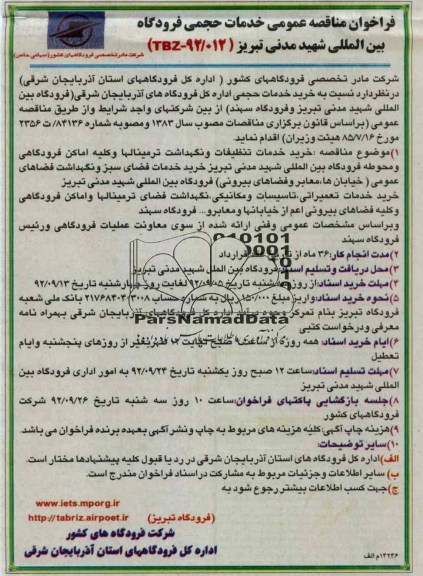 فراخوان مناقصه عمومی خدمات حجمی فرودگاه
بین المللی شهید مدنی تبریز (TBZ-92/012)
شرکت مادر تخصصی فرودگاههای کشور(سهامی خاص)
شرکت مادر تخصصی فرودگاههای کشور ( اداره کل فرودگاههای استان آذربایجان شرقی)
درنظردارد نسبت به خرید خدمات حجمی اداره کل فرودگاه های آذربایجان شرقی(فرودگاه بین
المللی شهید مدنی تبریز وفرودگاه سهند) از بین شرکتهای واجد شرایط واز طریق مناقصه
عمومی (براساس قانون برگزاری مناقصات مصوب سال 1383 ومصوبه شماره 84136/ ت 2356
مورخ 85/7/16 هیئت وزیران) اقدام نماید.
1)موضوع مناقصه :خرید خدمات تنظیفات ونگهداشت ترمینالها وکلیه اماکن فرودگاهی
ومحوطه فرودگاه بین المللی شهید مدنی تبریز خرید خدمات فضای سبز ونگهداشت فضاهای
عمومی ( خیابان ها،معابر وفضاهای بیرونی) فرودگاه بین المللی شهید مدنی تبریز
خرید خدمات تعمیراتی،تاسیسات ومکانیکی،نگهداشت فضای ترمینالها واماکن فرودگاهی
وکلیه فضاهای بیرونی اعم از خیابانها ومعابرو... فرودگاه سهند
وبراساس مشخصات عمومی وفنی ارائه شده از سوی معاونت عملیات فرودگاهی ورئیس
فرودگاه سهند
2)مدت انجام کار:36 ماه از تاریخ قرارداد
3)محل دریافت وتسلیم اسناد:فرودگاه بین الملل شهید مدنی تبریز
4)مهلت خرید اسناد:از روز شنبه تاریخ 92/09/05 لغایت روز چهارشنبه تاریخ 92/09/13
5)نحوه خرید اسناد:واریز مبلغ 150/000 ریال به شماره حساب 2176840403008 بانک ملی شعبه
فرودگاه تبریز بنام تمرکز وجوه اداره کل فرودگاههای آذربایجان شرقی بهمراه نامه
معرفی ودرخواست کتبی
6)ایام خرید اسناد: همه روزه از ساعت 8 صبح لغایت 12 ظهر بغیر از روزهای پنجشنبه وایام
تعطیل
7)مهلت تسلیم اسناد:ساعت 12 صبح روز یکشنبه تاریخ 92/09/24 به امور اداری فرودگاه بین
المللی شهید مدنی تبریز
8)جلسه بازگشایی پاکتهای فراخوان:ساعت 10 روز سه شنبه تاریخ 92/09/26 شرکت
فرودگاههای کشور
9)هزینه چاپ آگهی:کلیه هزینه های مربوط به چاپ ونشر آگهی بعهده برنده فراخوان می باشد.
10)سایر توضیحات:
الف)اداره کل فرودگاه های استان آذربایجان شرقی در رد یا قبول کلیه پیشنهادها مختار است.
ب) سایر اطلاعات وجزئیات مربوط به مشارکت در اسناد فراخوان مندرج است.
ج)جهت کسب اطلاعات بیشتر رجوع شود به
www.iets.mporg.ir
http://tabriz.airpoet.ir (فرودگاه تبریز)
شرکت فرودگاه های کشور
اداره کل فرودگاههای استان آذربایجان شرقی
14236م الف
ParsNamadData